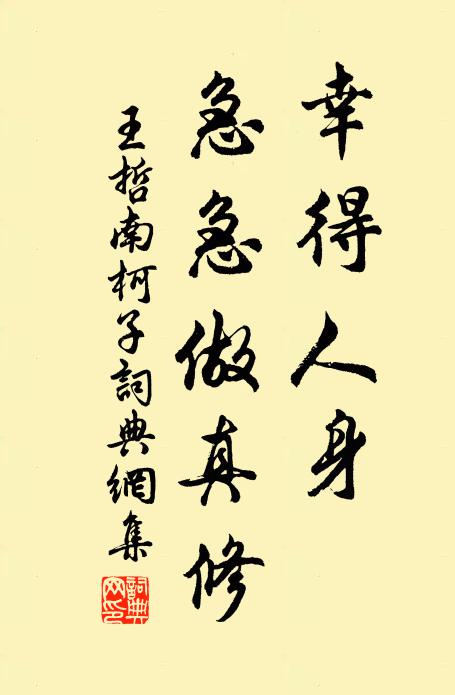 幸得人身
急急做真修
王哲南柯子詞典網集
詞典